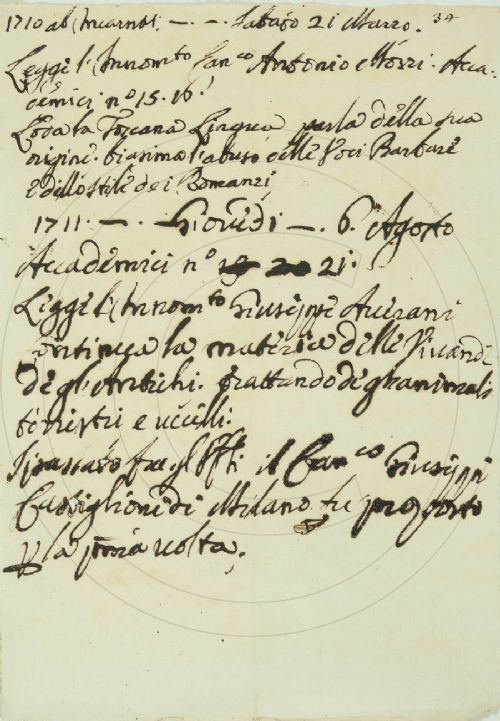 1710 ab Incarnat. —.—. Sabato 21 Marzo. 34
Legge l'Innom.to Can.co Antonio Mozzi: Acca=
demici n.o 15. 16.
Loda la Toscana Lingua parla della sua
origine. biasima l'abuso delle Voci Barbare
e dello stile dei Romanzi,
1711. —. —. Giovedì —. 6. Agosto
Accademici n.o 19 20 21.
Legge l'Innom.to Giuseppe Averani
continua la materia delle Vivande
degl'Antichi. trattando degl'animali
terrestri e uccelli.
fra gl'Uffi il Can.co Giuseppe
Castiglioni di Milano fu proposto
p la pma volta.